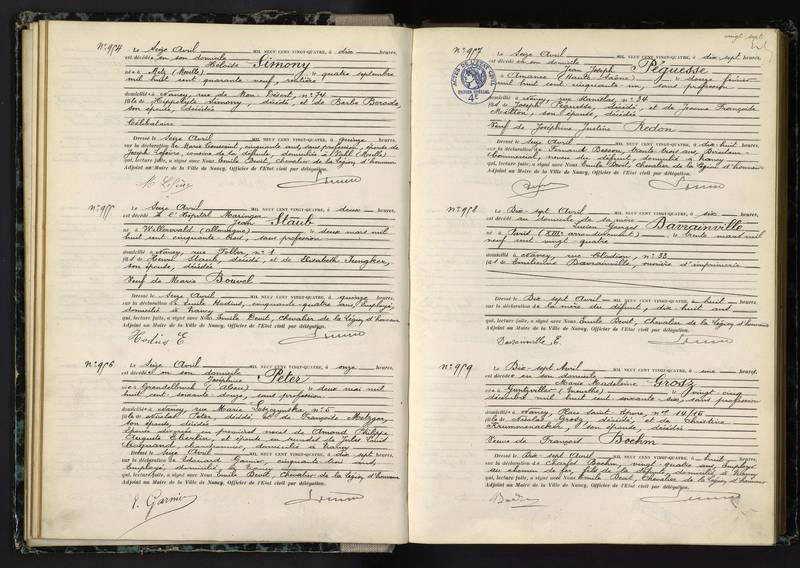 N° 954 Le Seize Avril MIL NEUF CENT VINGT-QUATRE, à dix heures,
est décédée en son domicile
Héloïse Simony
née à Metz (Moselle) le quatre septembre
mil huit cent quarante neuf, rentière
domiciliée à Nancy, rue de Mon Désert, n° 74
fille de Hippolyte Simony, décédé, et de Barbe
son épouse, décédée
Célibataire
Dressé le Seize Avril MIL NEUF CENT VINGT-QUATRE, à quinze heures,
sur la déclaration de Marie Toussaint, cinquante ans, sans profession, épouse de
Joseph Lefèvre, cousine de la défunte, domiciliée à
qui, lecture faite, a signé avec Nous Emile Devit, Chevalier de la Légion d'honneur
Adjoint au Maire de la Ville de Nancy, Officier de l'Etat civil par délégation.
N° 955 Le Seize Avril MIL NEUF CENT VINGT-QUATRE, à douze heures,
est décédé à l'Hôpital Maringer
Jean Staub
né à Willerwald (allemagne) le deux mars mil
huit cent cinquante trois, sans profession
domicilié à Nancy, rue Foller, n° 1
fils de Henri Staub, décédé, et de Elisabeth Jungker,
son épouse, décédée
Veuf de Marie Bouvel
Dressé le Seize Avril MIL NEUF CENT VINGT-QUATRE, à quinze heures,
sur la déclaration de Emile Hodius, cinquante-quatre ans, Employé,
domicilié à Nancy
qui, lecture faite, a signé avec Nous Emile Devit, Chevalier de la Légion d'honneur
Adjoint au Maire de la Ville de Nancy, Officier de l'Etat civil par délégation.
Hodius E
N° 956 Le Seize Avril MIL NEUF CENT VINGT-QUATRE, à onze heures,
est décédée en son domicile
Joséphine Peter
née à Grendelbruch (Alsace) le deux mai mil
huit cent soixante douze, sans profession
domiciliée à Nancy, rue Marie Leczinska, n° 6
fille de Nicolas Peter, décédé, et de Françoise Metzger,
son épouse, décédée
Epouse divorcée en premières noces de Amand Philippe
Auguste Eberlin, et épouse en secondes de Jules Louis
domicilié à Nancy
Dressé le Seize Avril MIL NEUF CENT VINGT-QUATRE, à dix sept heures,
sur la déclaration de Edouard Garnier, cinquante trois ans,
Employé, domicilié à Nancy
qui, lecture faite, a signé avec Nous Emile Devit, Chevalier de la Légion d'honneur
Adjoint au Maire de la Ville de Nancy, Officier de l'Etat civil par délégation.
E. Garnier
vingt-sept
N° 957 Le Seize Avril MIL NEUF CENT VINGT-QUATRE, à dix sept heures,
est décédé en son domicile
Jean Joseph Péguesse
né à Amance (Haute Saône) le douze février
mil huit cent cinquante un, sans profession
domicilié à Nancy, rue Stanislas, n° 34
fils de Joseph Péguesse, décédé, et de Jeanne Françoise
son épouse, décédée
Veuf de Joséphine Justine Redon
Dressé le Seize Avril MIL NEUF CENT VINGT-QUATRE, à dix huit heures,
sur la déclaration de Fernand Besson, trente trois ans, Directeur
Commercial, neveu du défunt, domicilié à Nancy
qui, lecture faite, a signé avec Nous Emile Devit, Chevalier de la Légion d'honneur
Adjoint au Maire de la Ville de Nancy, Officier de l'Etat civil par délégation.
ACTES DE L'ETAT CIVIL
PAPIER SPÉCIAL
N° 958 Le Dix-sept Avril MIL NEUF CENT VINGT-QUATRE, à six heures,
est décédé au domicile de sa mère
Lucien Georges Davrainville
né à Paris (XIIIe arrondissement) le trente mars mil
neuf cent vingt quatre
domicilié à Nancy, rue Clodion, n° 33
fils de Emilienne Davrainville, ouvrière d'imprimerie
Dressé le Dix-sept Avril MIL NEUF CENT VINGT-QUATRE, à huit heures,
sur la déclaration de la mère du défunt, dix huit ans
qui, lecture faite, a signé avec Nous Emile Devit, Chevalier de la Légion d'honneur
Adjoint au Maire de la Ville de Nancy, Officier de l'Etat civil par délégation.
Davrainville E.
N° 959 Le Dix-sept Avril MIL NEUF CENT VINGT-QUATRE, à une heures,
est décédée en son domicile
Marie Madeleine Grosz
née à Guntzviller (Meurthe) le vingt cinq
décembre mil huit cent soixante six, sans profession
domiciliée à Nancy, Place Saint Epvre, n° 14/16
fille de Nicolas Grosz, décédé, et de Christine
Krummenacker, son épouse, décédée
Veuve de François Boehm
Dressé le Dix-sept Avril MIL NEUF CENT VINGT-QUATRE, à huit heures,
sur la déclaration de Charles Boehm, vingt quatre ans, Employé
au chemin de fer, fils de la défunte, domicilié à Nancy
qui, lecture faite, a signé avec Nous Emile Devit, Chevalier de la Légion d'honneur
Adjoint au Maire de la Ville de Nancy, Officier de l'Etat civil par délégation.